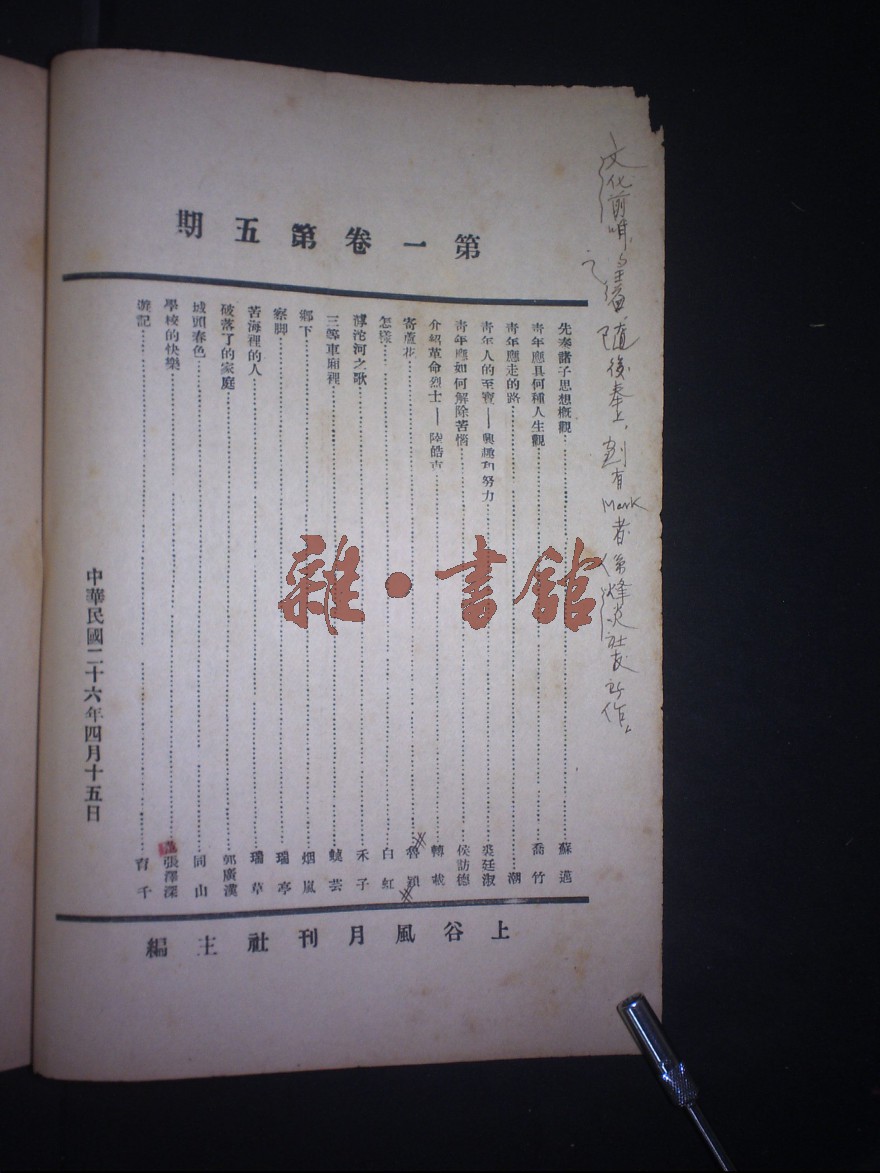 第一卷第五期
先秦諸子思想概觀 蘇邁
青年應具何種人生觀 喬竹
青年應走的路 潮
青年人的至寶——興趣和努力 裘廷淑
青年應如何解除苦惱 侯訪德
介紹革命烈士——陸皓東 轉載
寄蘆花 魯穎
怎樣 白虹
滹沱河之歌 禾子
三等車廂裡 蟯芸
鄉下 烟嵐
察腳 瑞亭
苦海裡的人 瑞草
破落了的家庭 郭廣漢
城頭春色 同山
學校的快樂 張澤深
遊記 育千
中華民國二十六年四月十五日
上谷風月刊社主編
文化前哨
隨後奉上,
有Mark者係烽炎社友所作。
雜·書館